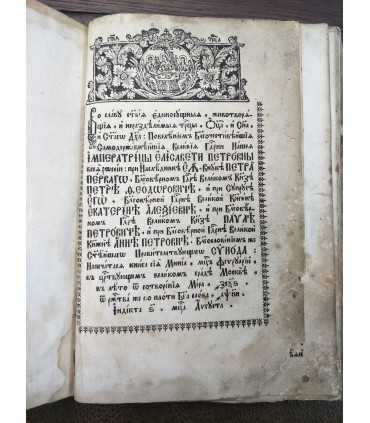 Во славу ст҃ыѧ єдиносущныѧ, животворѧ-
щиѧ, и нераздѣлимыѧ трⷪ҇цы, Ѻц҃а и Сн҃а
и Ст҃агѡ Дх҃а: Повелѣнїемъ Бл҃гочестивѣйшїѧ
Самодержавнѣйшїѧ Великїѧ Гдⷭ҇рни Нашеѧ
ІМПЕРАТРИЦЫ ЕЛИСАВЕТЫ ПЕТРОВНЫ
при Наслѣдникѣ ЕѦ Внукѣ ПЕТРА
ПЕРВАГѠ, Бл҃говѣрномъ Гдⷭ҇рѣ Великомъ Кнѕ҃ѣ
ПЕТРѢ ѲЕОДОРОВИЧѢ, и при Супругѣ
єгѡ Бл҃говѣрной Гдⷭ҇рнѣ Великой Кнѧгинѣ
ЕКАТЕРИНѢ АЛЕѮІЕВНѢ, и при Бл҃говѣр-
номъ Гдⷭ҇рѣ Великомъ Кнѕ҃ѣ ПАУЛѢ
ПЕТРОВИЧѢ, и при Бл҃говѣрной Гдⷭ҇рнѣ Великой
Кнѧжнѣ АННѢ ПЕТРОВНѢ, Бл҃гословенїемъ же
Ст҃ѣйшагѡ Правительствующагѡ СУНОДА:
Напечатасѧ книга сїѧ Минїа, мцⷭ҇ъ
въ царствующемъ великомъ градѣ Москвѣ,
въ лѣто ѿ сотворенїѧ Мїра
ѿ ржⷭ҇тва же по плоти Бг҃а слова
Індїкта ѕ҃, мцⷭ҇а Аугуста